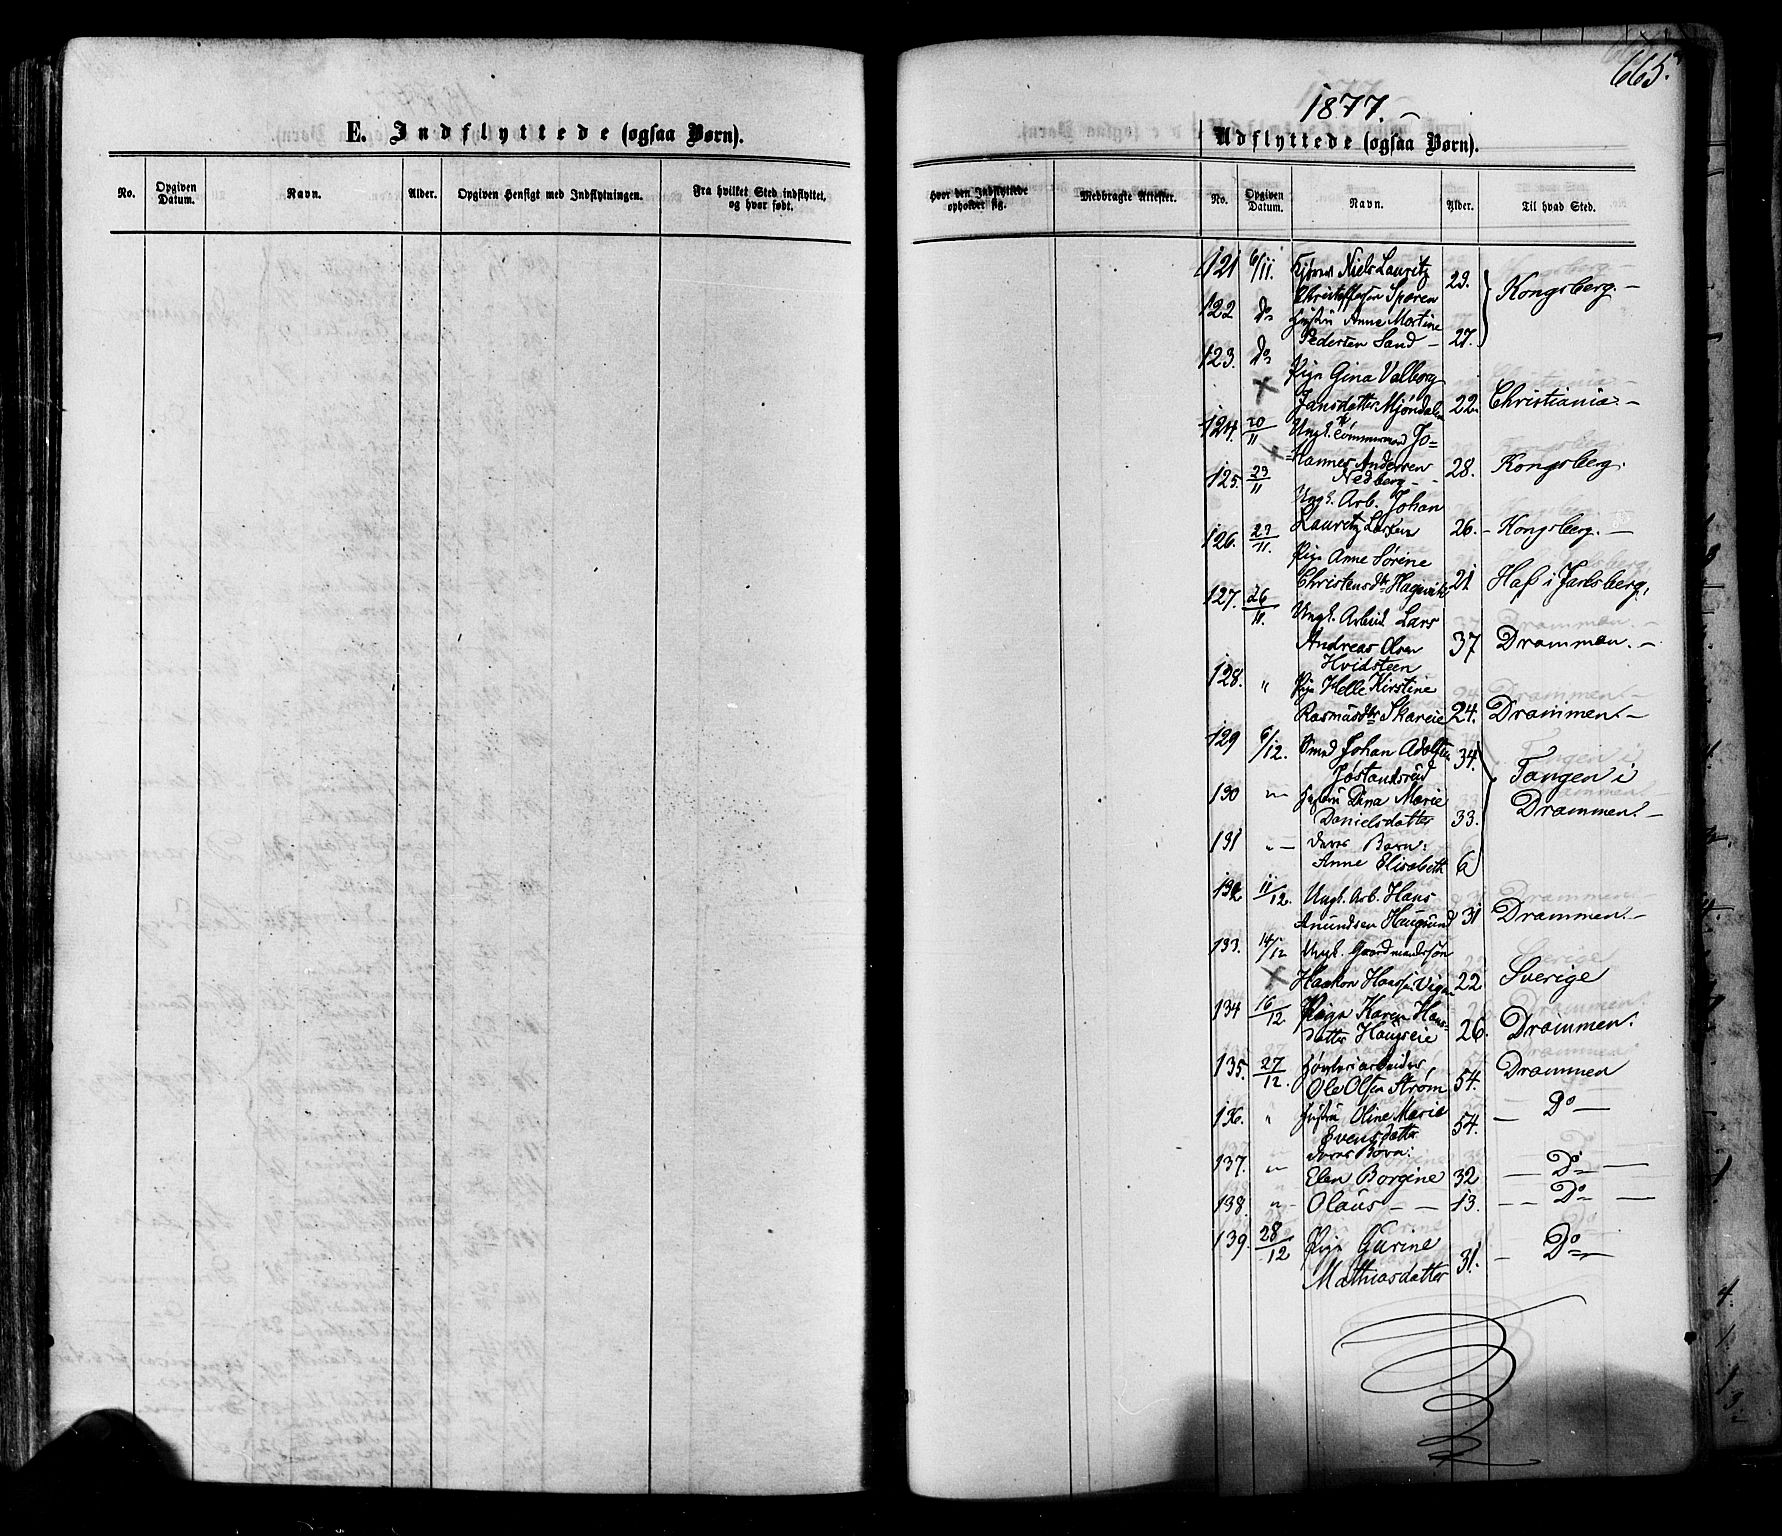 665.
E. Indflyttede (ogsaa Børn).
No. Opgiven Datum. Navn. Alder. Opgiven Hensigt med Indflytningen. Fra hvilket Sted indflyttet, og hvor født.
1877.
Udflyttede (ogsaa Børn).
Hvor den Indflyttede opholder sig. Medbragte Attester. No. Opgiven Datum. Navn. Alder. Til hvad Sted.
121 6/11. Niels Lauritz
Christoffersen Sporen 29. Kongsberg.
122 Do Hustru Anne Martine
Pedersen Sand 27.
123. Do Pige Gina Valborg
Jansdatter Mjøndalen 22 Christiania.
124. 20/11 Ungk. Tømmermand Jo=
=hannes Andersen
Nedberg 28. Kongsberg.
125. 23/11 Ungk. Arb. Johan
Lauritz Larsen 26. Kongsberg.
126. 23/11. Pige Anne Sørene
Christensdtr Hagevik 21 Hof i Jarlsberg.
127. 26/11. Ungk. Arbeid. Lars
Andreas Olsen 37 Drammen.
Hvidsteen
128. " Pige Helle Kirstine
Rasmusdtr Skareie 24. Drammen.
129 6/12. Smed Johan Adolfsen 34. Tangen i
Jøstandsrud
130 " Hustru Dina Marie Drammen.
Danielsdatter 33.
131 " deres Barn:
Anne Elisabeth 6
132 11/12. Ungk. Arb. Hans
Amundsen Haugsund 31 Drammen.
133. 14/12 Ungk. Gaardmandssøn
Haakon Hanssen 22 Sverige
134 16/12. Pige Karen Hans=
datter Haugseie 26. Drammen.
135. 27/12. Høvleriarbeider
Ole Olsen Strøm 54. Drammen
136. " Hustru Oline Marie Do
Evensdatter 54.
137. " deres Børn:
Elen Borgine 32 Do
138. " Olaus 13. Do
139. 28/12 Pige Gurine Do
Mathiasdatter 31.